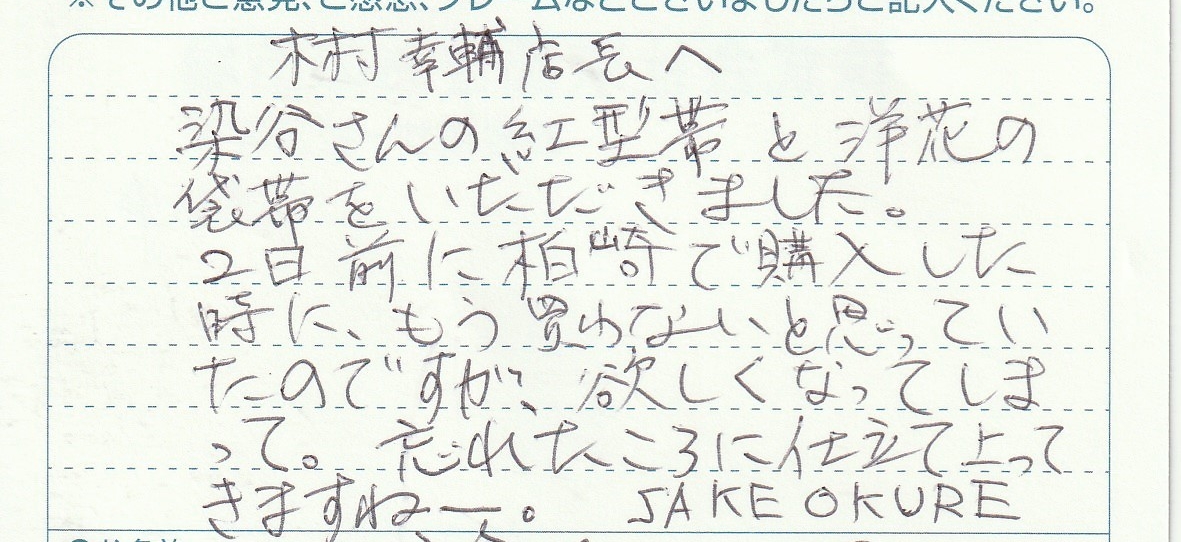 ※その他ご意見、ご感想、クレームなどございましたらご記入ください。
木村幸輔店長へ
染谷さんの紅型帯と洋花の
袋帯をいただきました。
2日前に柏崎で購入した
時に、もう買わないと思ってい
たのですが、欲しくなってしま
って。忘れたころに仕立て上って
きますねー。 SAKE OKURE